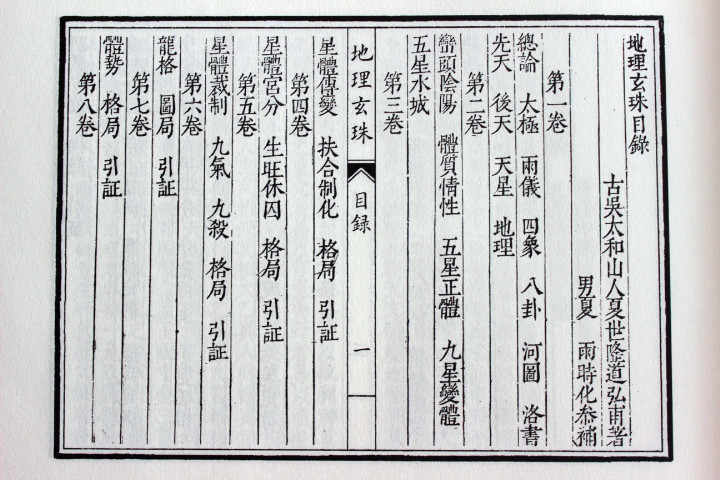 地理玄珠目錄
古吳太和山人夏世隆道弘甫著
男夏 雨時化叅補
第一卷
總論 太極 兩儀 四象 八卦 河圖 洛書
先天 後天 天星 地理
第二卷
巒頭陰陽 體質情性 五星正體 九星變體
五星水城
第三卷
地理玄珠 目錄 一
星體傳變 扶合制化 格局 引証
第四卷
星體宮分 生旺休囚 格局 引証
第五卷
星體裁制 九氣 九殺 格局 引証
第六卷
龍格 圖局 引証
第七卷
體勢 格局 引証
第八卷